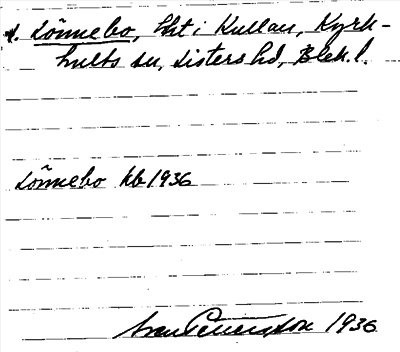 1. Lönnebo, lht i Kullan, Kyrk-
hults sn, Listers hd, Blek. l.
Lönnebo kb 1936
1936